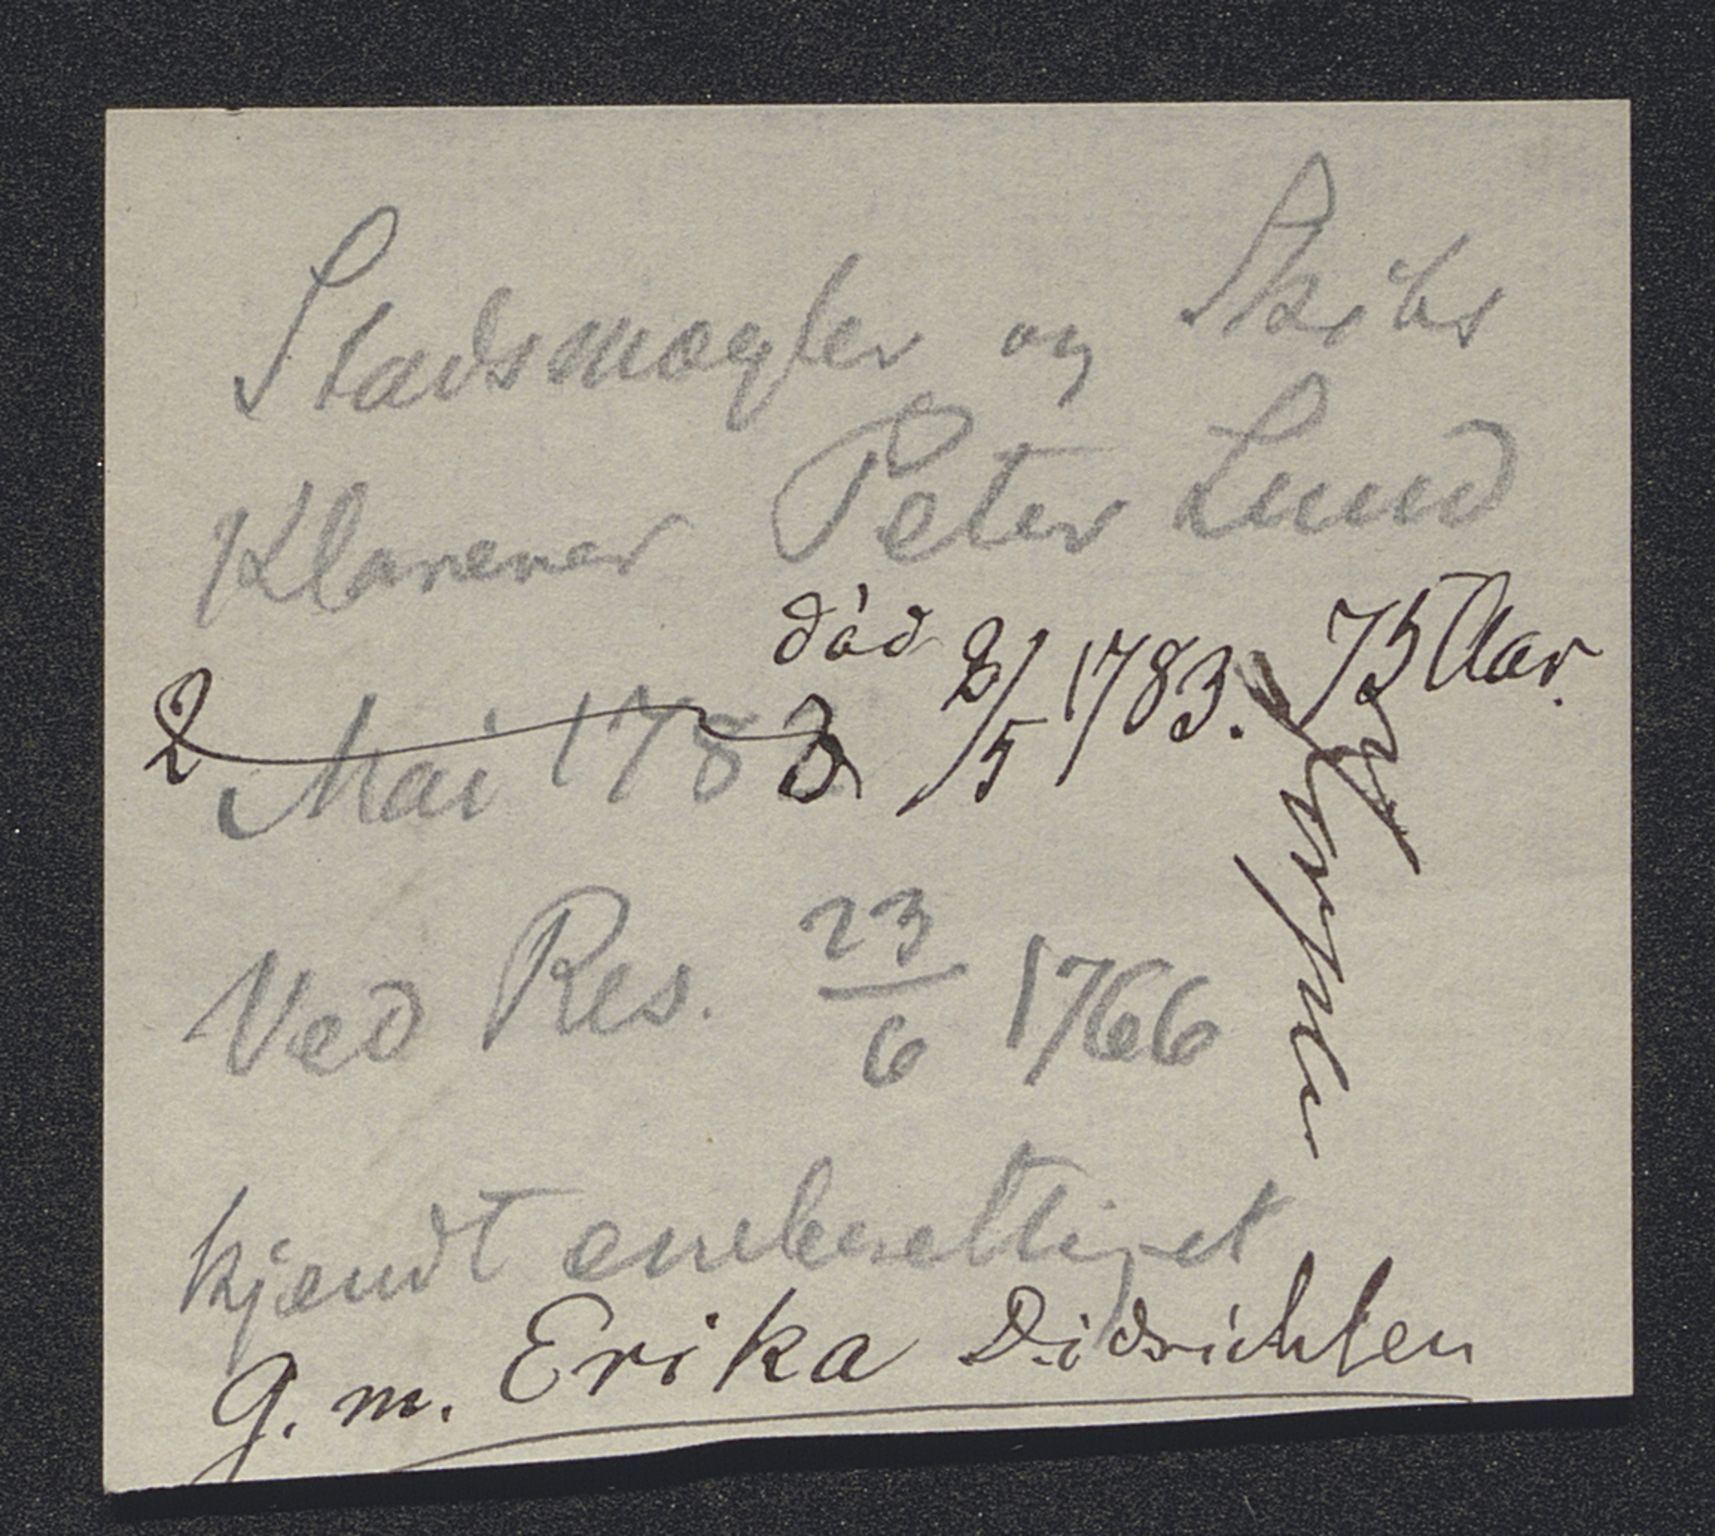 Stadsmægler og Skibs
Klarerer Peter Lund
død 2/5 1783. 75 Aar.
2 Mai 1783
Ved Res. 23/6 1766
kjendt eneberettiget
G. m. Erika Didrichsen